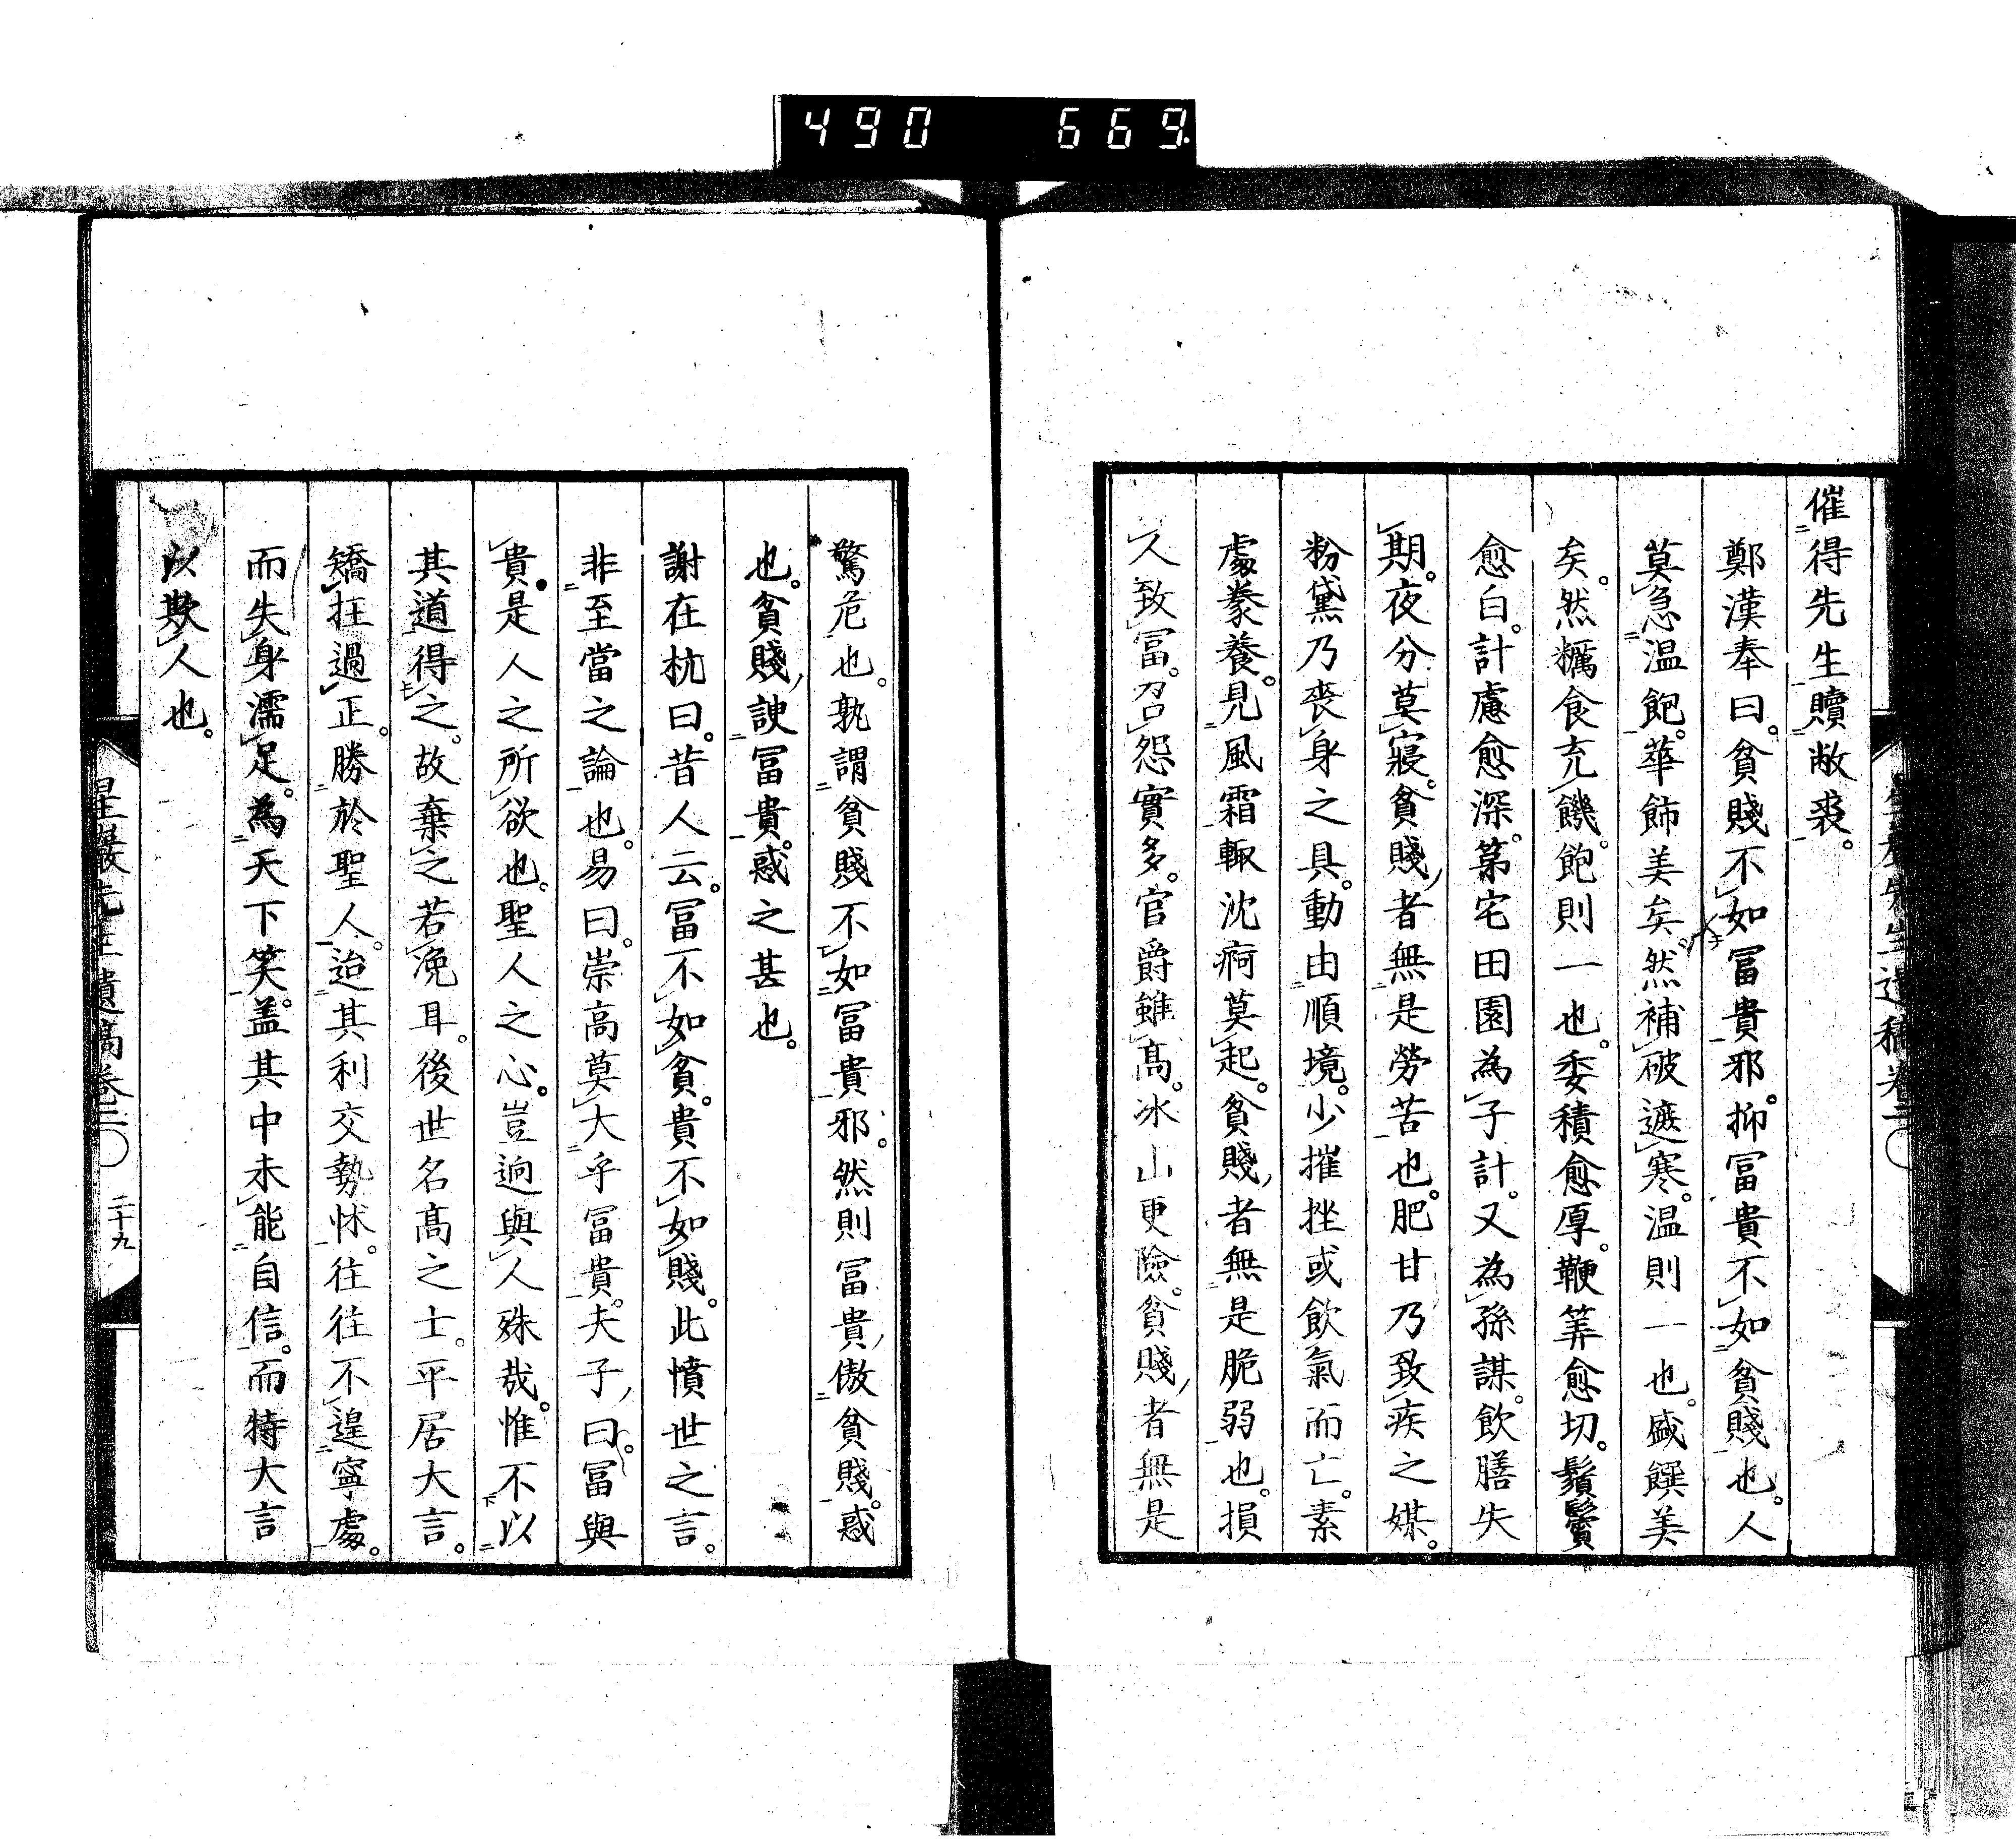 490 669
催得先生贖敝裘。
鄭漢奉曰。貧賤不如冨貴邪。抑冨貴不如貧賤也。人
莫急温飽。華飾美矣。然補破遮寒。温則一也。盛饌美
矣。然糲食充饑。飽則一也。委積愈厚。鞭筭愈切。鬚鬢
愈白。計慮愈深。第宅田園為子計。又為孫謀。飲膳失
期。夜分莫寢。貧賤者無是勞苦也。肥甘乃致疾之媒。
粉黛乃喪身之具。動由順境。少摧挫或飲氣而亡。素
處豢養。見風霜輙沈痾莫起。貧賤者無是脆弱也。損
人致冨。召怨實多。官爵雖高。冰山更險。貧賤者無是
驚危也。孰謂貧賤不如冨貴邪。然則冨貴傲貧賤。惑
也。貧賤諛冨貴。惑之甚也。
謝在杭曰。昔人云。冨不如貧。貴不如賤。此憤世之言。
非至當之論也。易曰。崇高莫大乎冨貴。夫子曰。冨與
貴。是人之所欲也。聖人之心。豈逈與人殊哉。惟不以
其道得之。故棄之若浼耳。後世名高之士。平居大言。
矯抂過正。勝於聖人。迨其利交勢怵。往往不遑寧處。
而失身濡足。為天下笑。盖其中未能自信。而特大言
以欺人也。
星巖先生遺稿卷二 二十九